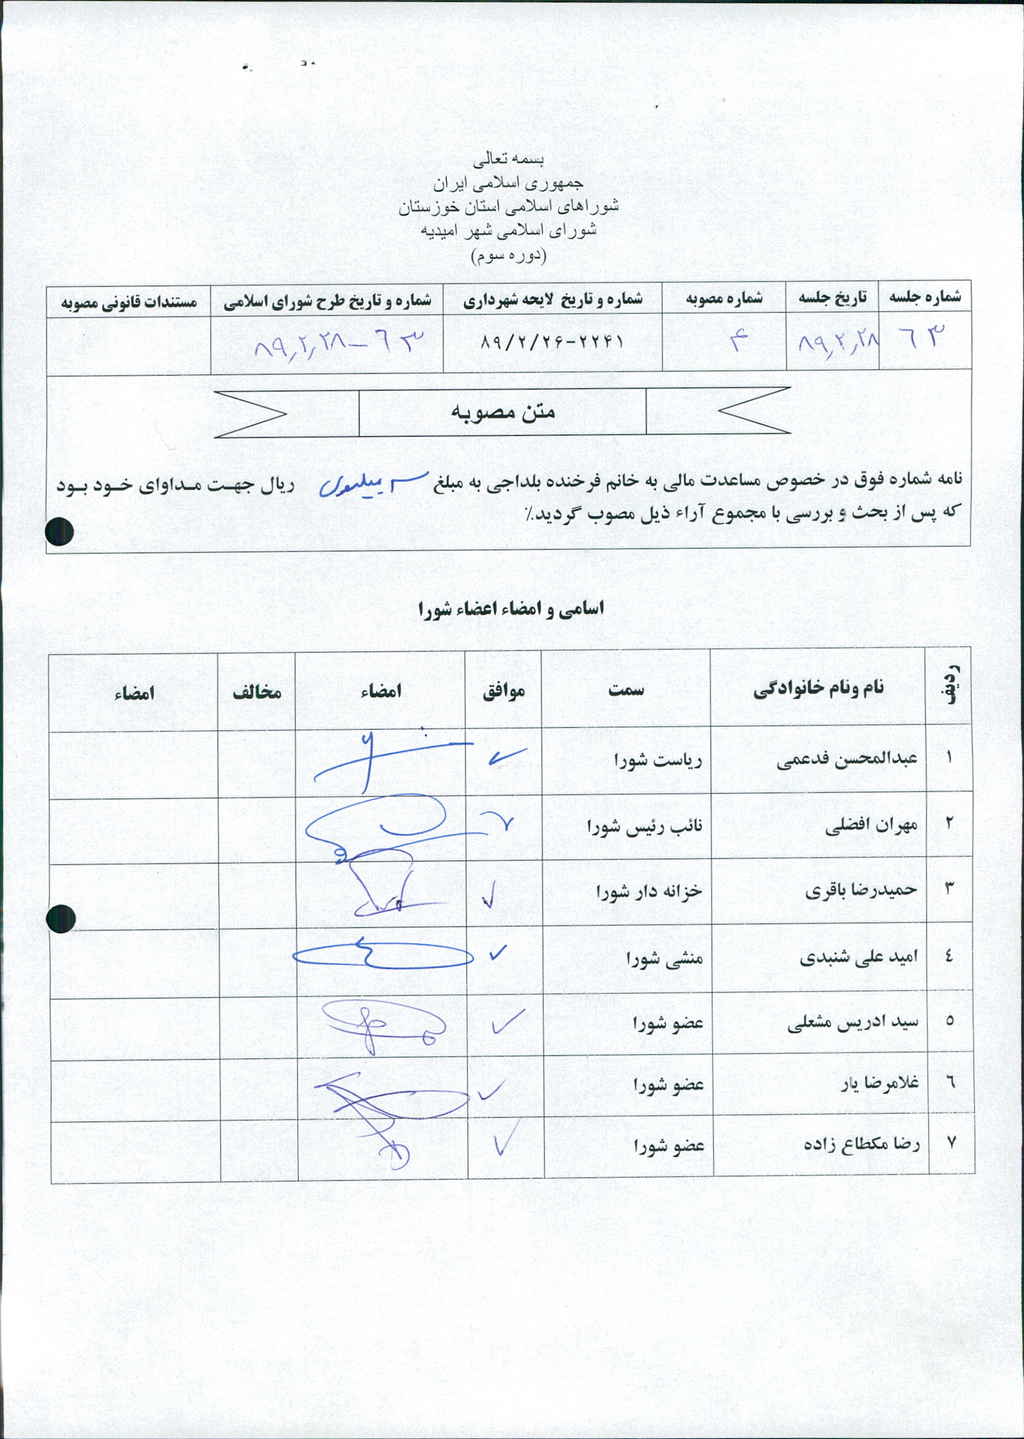 بسمه تعالی
جمهوری اسلامی ایران
شوراهای اسلامی استان خوزستان
شورای اسلامی شهر امیدیه
(دوره سوم)
شماره جلسه تاریخ جلسه شماره مصوبه شماره و تاریخ لایحه شهرداری شماره و تاریخ طرح شورای اسلامی مستندات قانونی مصوبه
۶۳ ۸۹٫۲٫۲۸ ۴ ۲۲۴۱-۸۹/۲/۲۶ ۶۳ - ۸۹٫۲٫۲۸
متن مصوبه
نامه شماره فوق در خصوص مساعدت مالی به خانم فرخنده بلداجی به مبلغ سه میلیون ریال جهت مداوای خود بود
که پس از بحث و بررسی با مجموع آراء ذیل مصوب گردید.٪
اسامی و امضاء اعضاء شورا
ردیف نام ونام خانوادگی سمت موافق امضاء مخالف امضاء
۱ عبدالمحسن فدعمی ریاست شورا ✓
۲ مهران افضلی نائب رئیس شورا ✓
۳ حمیدرضا باقری خزانه دار شورا ✓
٤ امید علی شنبدی منشی شورا ✓
٥ سید ادریس مشعلی عضو شورا ✓
٦ غلامرضا یار عضو شورا ✓
۷ رضا مکطاع زاده عضو شورا ✓